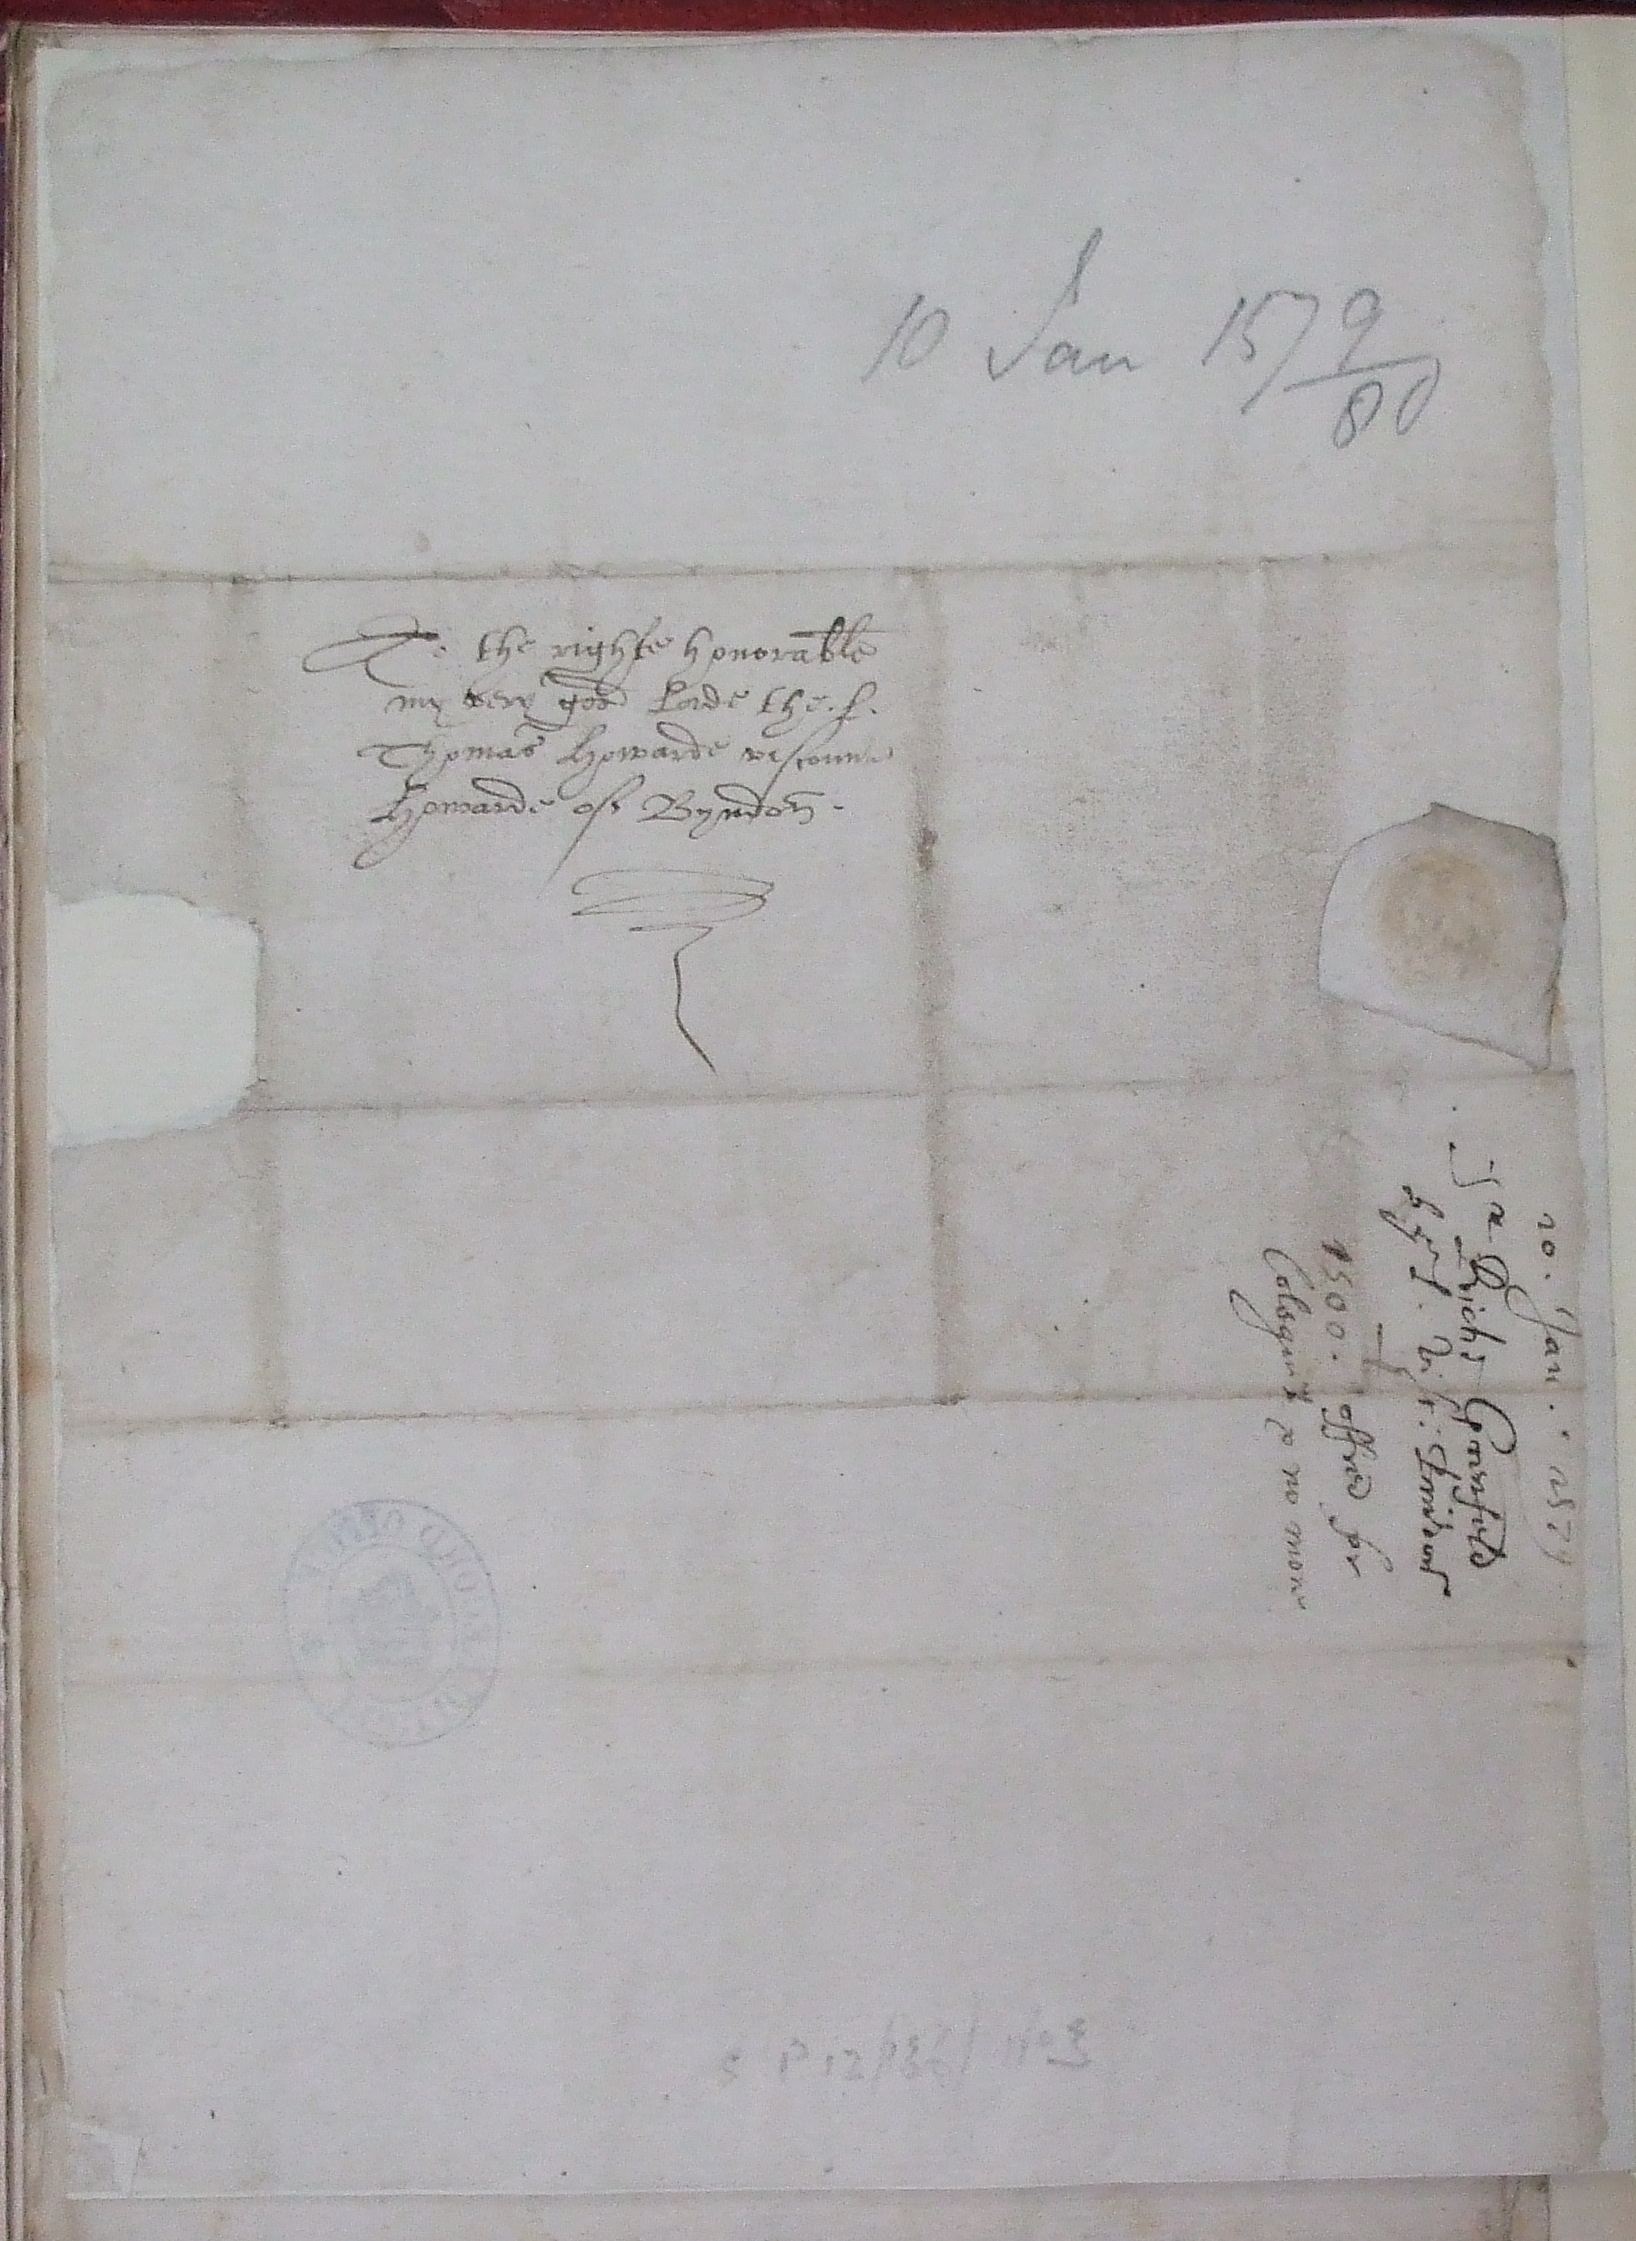 10 Jan 1579/80
To the righte honorable
my very good Lorde the . L .
Thomas Howarde viscount
Howarde off Byndon .
10 . Jan . 1579
Sr Richd Grenfeld
to the L . Vic .
1500 . offred for
and no more
S P 12/136/ No 3